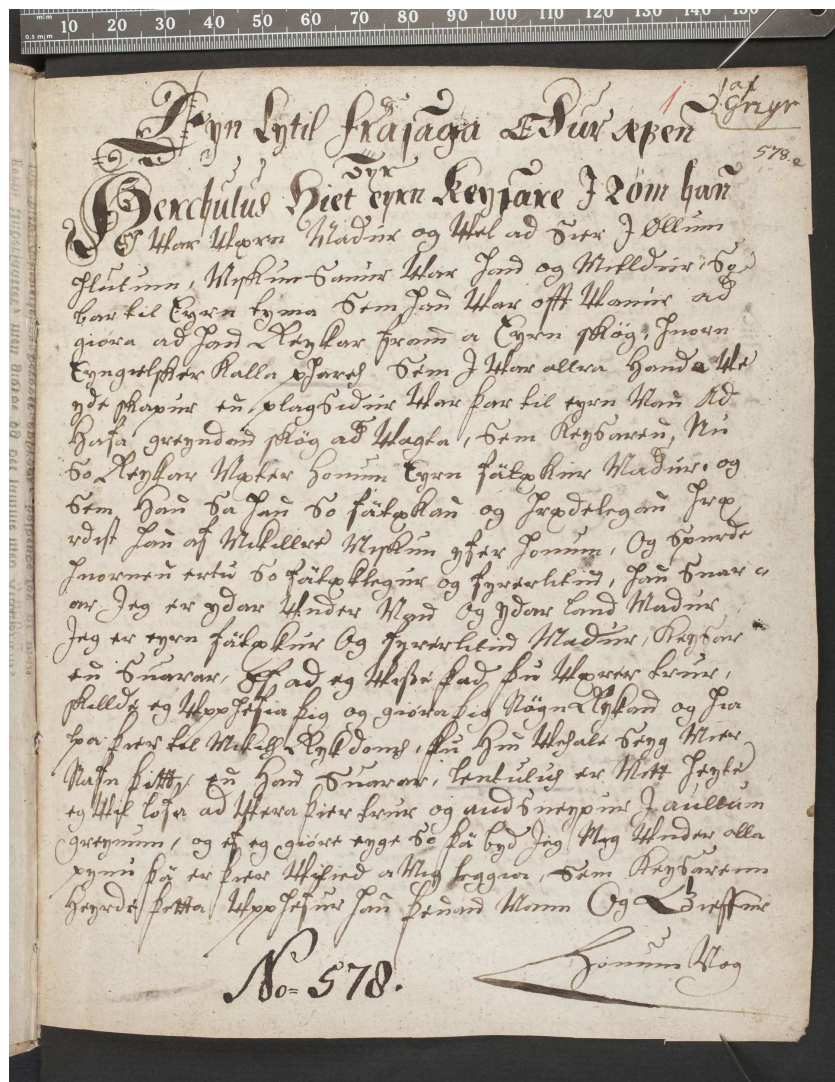 Eyn Lytil frasaga Edur æpen
Tyr
578.
Herchulus Hiet eyrn Keysare J Röm han
War Wæn Madur og Wel ad Sier J Øllum
Hlutum, Myskun Samur War Han og Milldur, So
bar til Eyrn tyma Sem Han War offt Wanur ad
giöra ad Han Reykar fram a Eyrn Skög, Huorn
Eyngielsker Kalla phares Sem J War allra Handa We
yde skapur en plagsidur War þar til eyrn Man Ad
Hafa greyndan skög ad Wagta, Sem Keysaren, Nu
So Reykar Mæter Honum Eyrn fätækur Madur, og
Sem Han Sa Han So fätækan og Hrædelegan Hræ
rdist Han af Mikillre Myskun yfer Honum, Og Spurde
Huornen ertu So fätæklegur og fyrerlitin, Han Suar
ar Jeg er ydar Under Man Og ydar land Madur
Jeg er eyrn fätækur Og fyrerlitin Madur, Keysar
en Suarar, Ef ad eg Wisse þad þu Wærer trur,
skillde eg Upp Hefia þig og giöra þig Nögu Rykan og Hia
lpa þier til Mikils Rykdoms, þu Hin Wesale Seyg Mier
Nafn þitt, en Han Suarar, Lentulus er Mitt Heyte
eg Wil lofa ad Wera þier trur og audsueypur J aullum
greynum, og ef eg giöre eyge So þä byd Jeg Mig Under alla
pynu þä er þier Wilied a Mig leggia, Sem Keysarenn
Heyrde þetta Upp Hefur Han þennan Mann Og Gieffur
Honum Nog
No= 578.